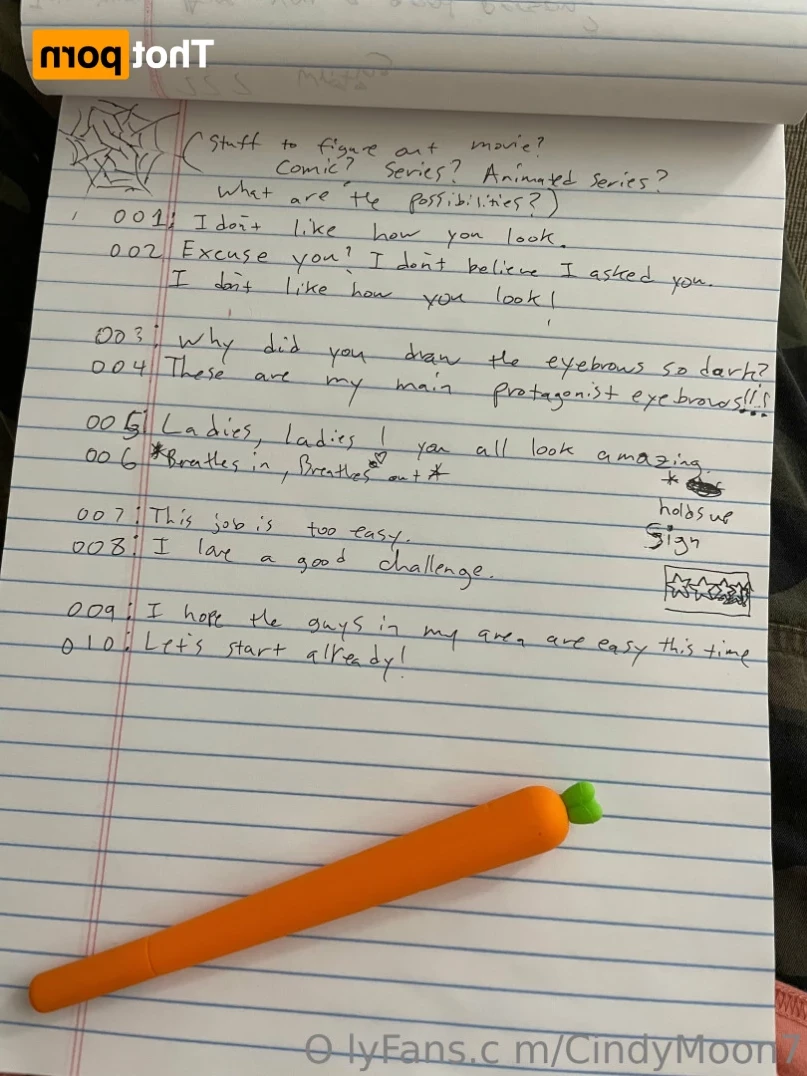 Thot porn
(Stuff to figure out movie?
Comic? Series? Animated series?
What are the possibilities?)
001: I don't like how you look.
002 Excuse you? I don't believe I asked you.
I don't like how you look!
003: Why did you draw the eyebrows so dark?
004 These are my main protagonist eyebrows!!!
005: Ladies, Ladies! you all look amazing.
006 *Breathes in, Breathes out*
*
holds up
Sign
007: This job is too easy.
008: I love a good challenge.
009: I hope the guys in my area are easy this time
010: Let's start already!
O lyFans.c m/CindyMoon7